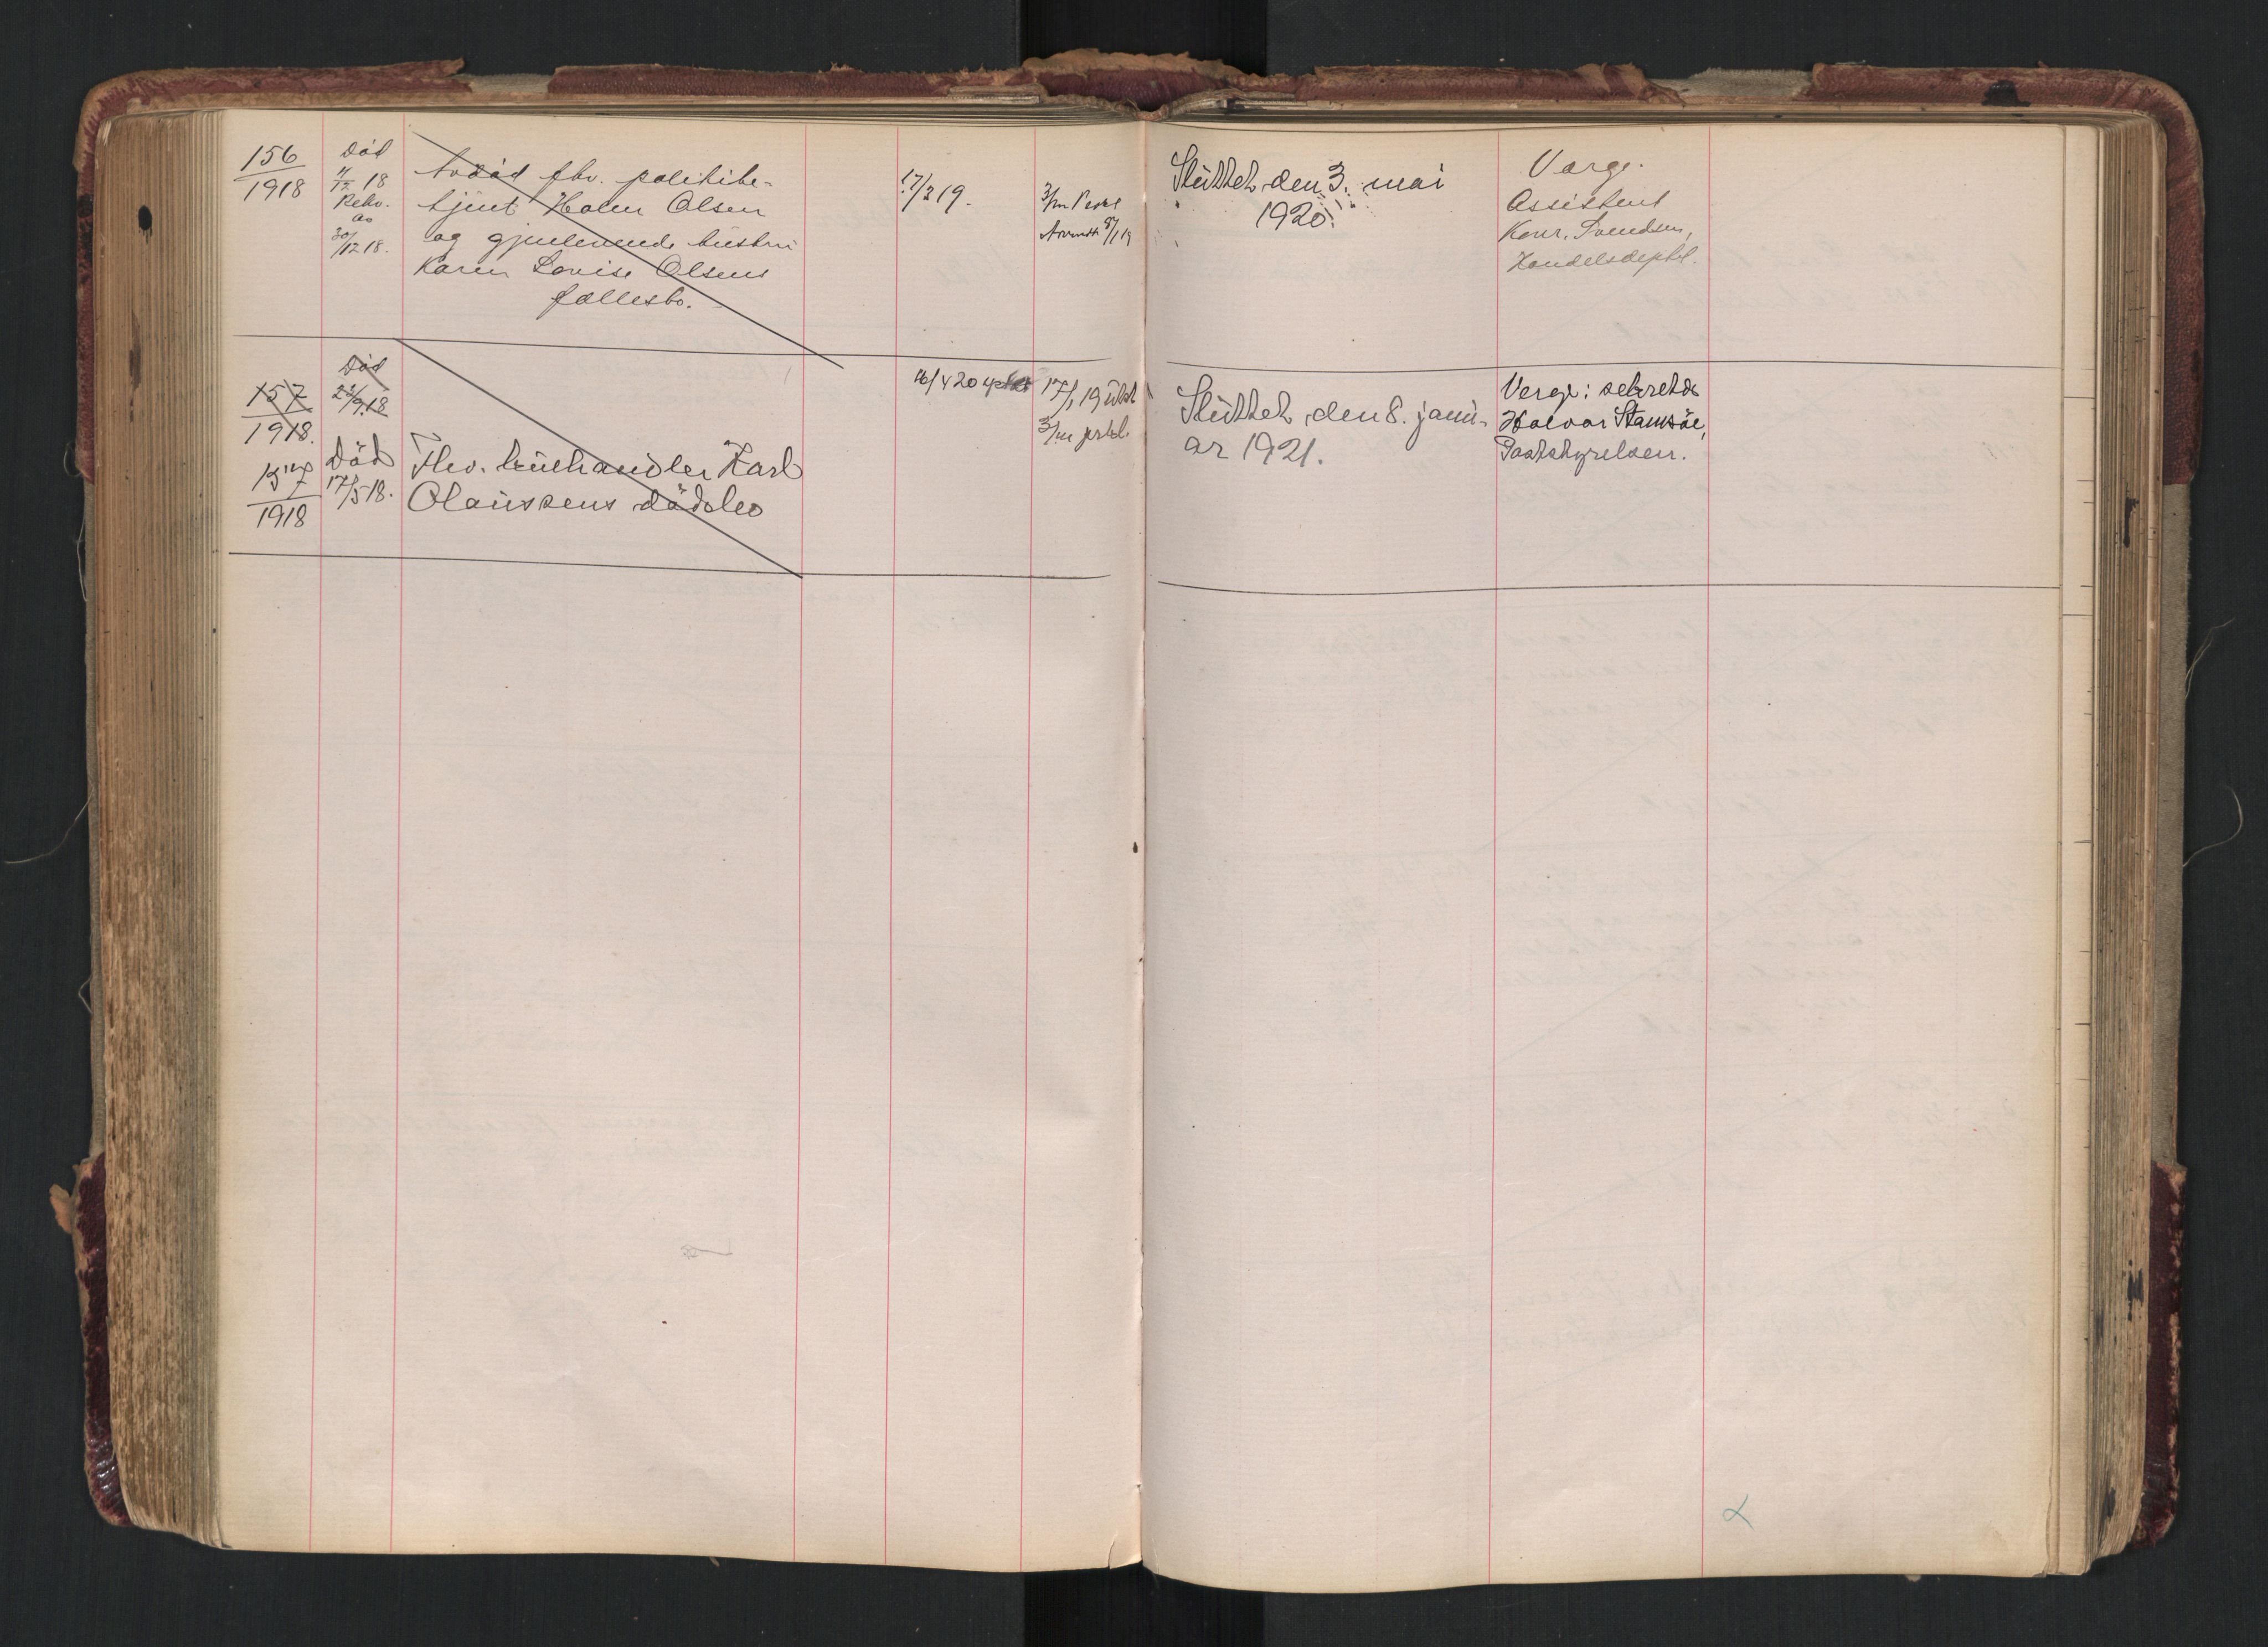 156
1918
Död
4/12 18
Rekv.
av
30/12 18.
Avdöd fhv. politibe-
tjent Holm Olsen
og gjenlevende hustru
Karen Lovise Olsens
fællesbo.
17/3 19.
3/m
8/1 19
Sluttet den 3. mai
1920.
Verge:
Assistent
Konr. Svendsen,
Handelsdeptet.
157
1918.
Död
22/9.18
157
1918
Död
17/5 18.
Fhv. kulhandler Karl
Olaussens dödsbo
16/4 20
17/1 19
3/m
Sluttet den 8. janu-
ar 1921.
Verge: sekretær
Halvor Stamsöe,
Poststyrelsen.